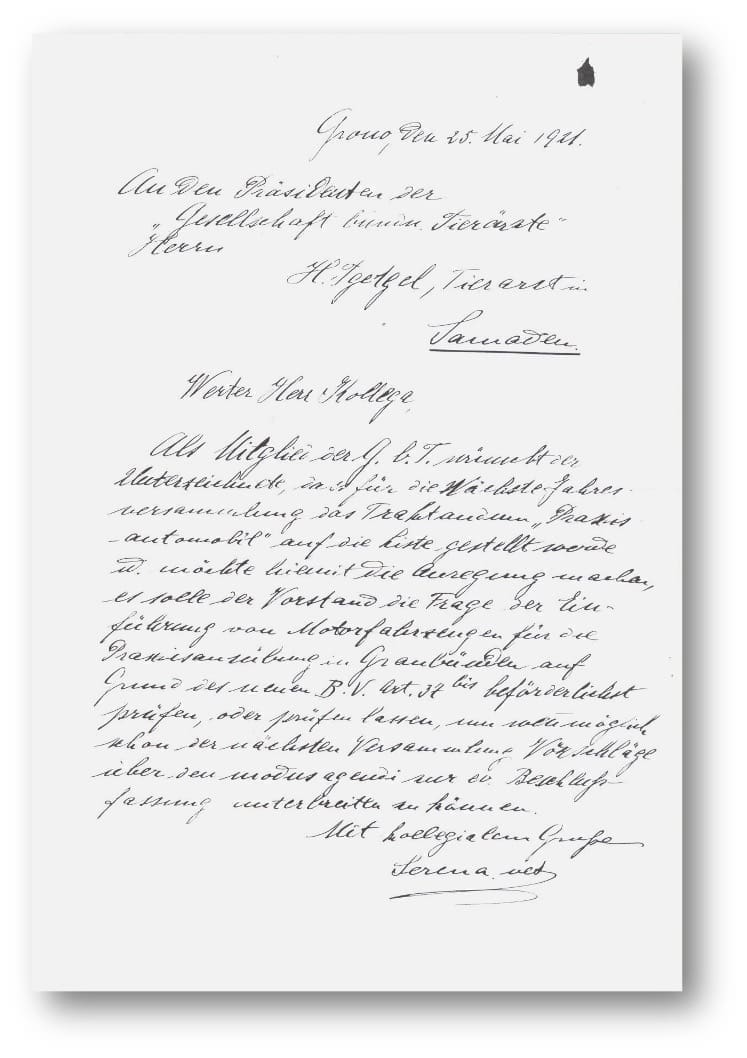 Grono, den 25. Mai 1921.
An den Präsidenten der
„Gesellschaft bündn. Tierärzte“
Herrn
H. Tgetgel, Tierarzt in
Samaden.
Werter Herr Kollega,
Als Mitglied der G. b. T. wünscht der
Unterzeichnete, dass für die nächste Jahres-
versammlung das Traktandum „Praxis
-automobil“ auf die Liste gestellt werde
u. möchte hiemit die Anregung machen,
es solle der Vorstand die Frage der Ein-
führung von Motorfahrzeugen für die
Praxisausübung in Graubünden auf
Grund des neuen B.V. Art. 37 bis beförderlichst
prüfen, oder prüfen lassen, um wenn möglich
schon der nächsten Versammlung Vorschläge
über den modus agendi zur ev. Beschluß-
fassung unterbreiten zu können.
Mit kollegialem Gruße
Serena. vet